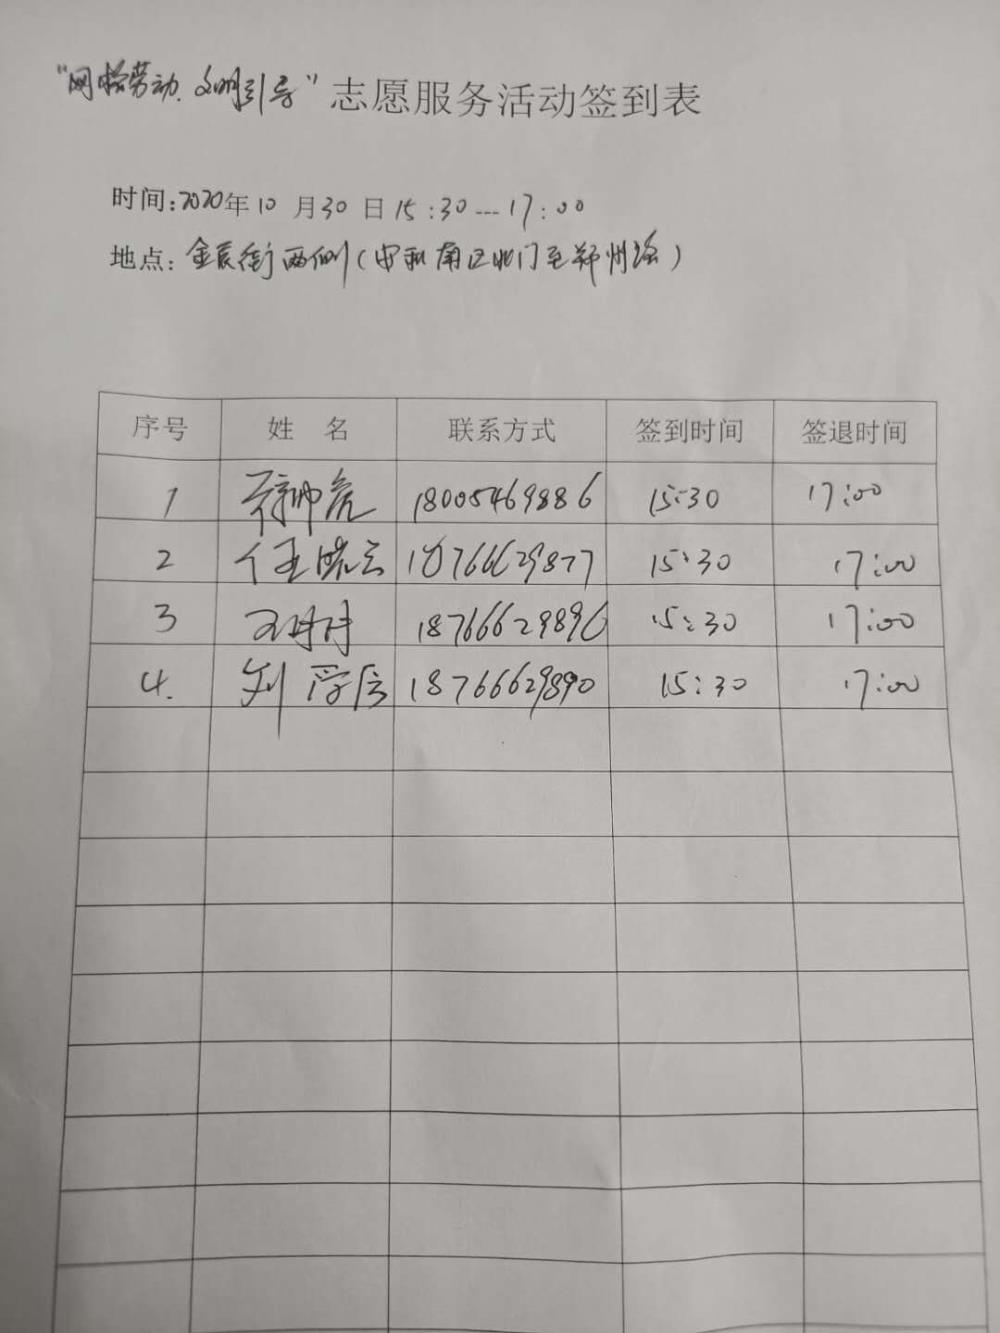 “网格劳动、文明引导”志愿服务活动签到表
时间:2020年10月30日15:30---17:00
地点:金辰街两侧(安和南区北门至郑州路)
序号 姓名 联系方式 签到时间 签退时间
1 18005469886 15:30 17:00
2 任晓云 18766629877 15:30 17:00
3 18766629896 15:30 17:00
4. 刘 18766629890 15:30 17:00